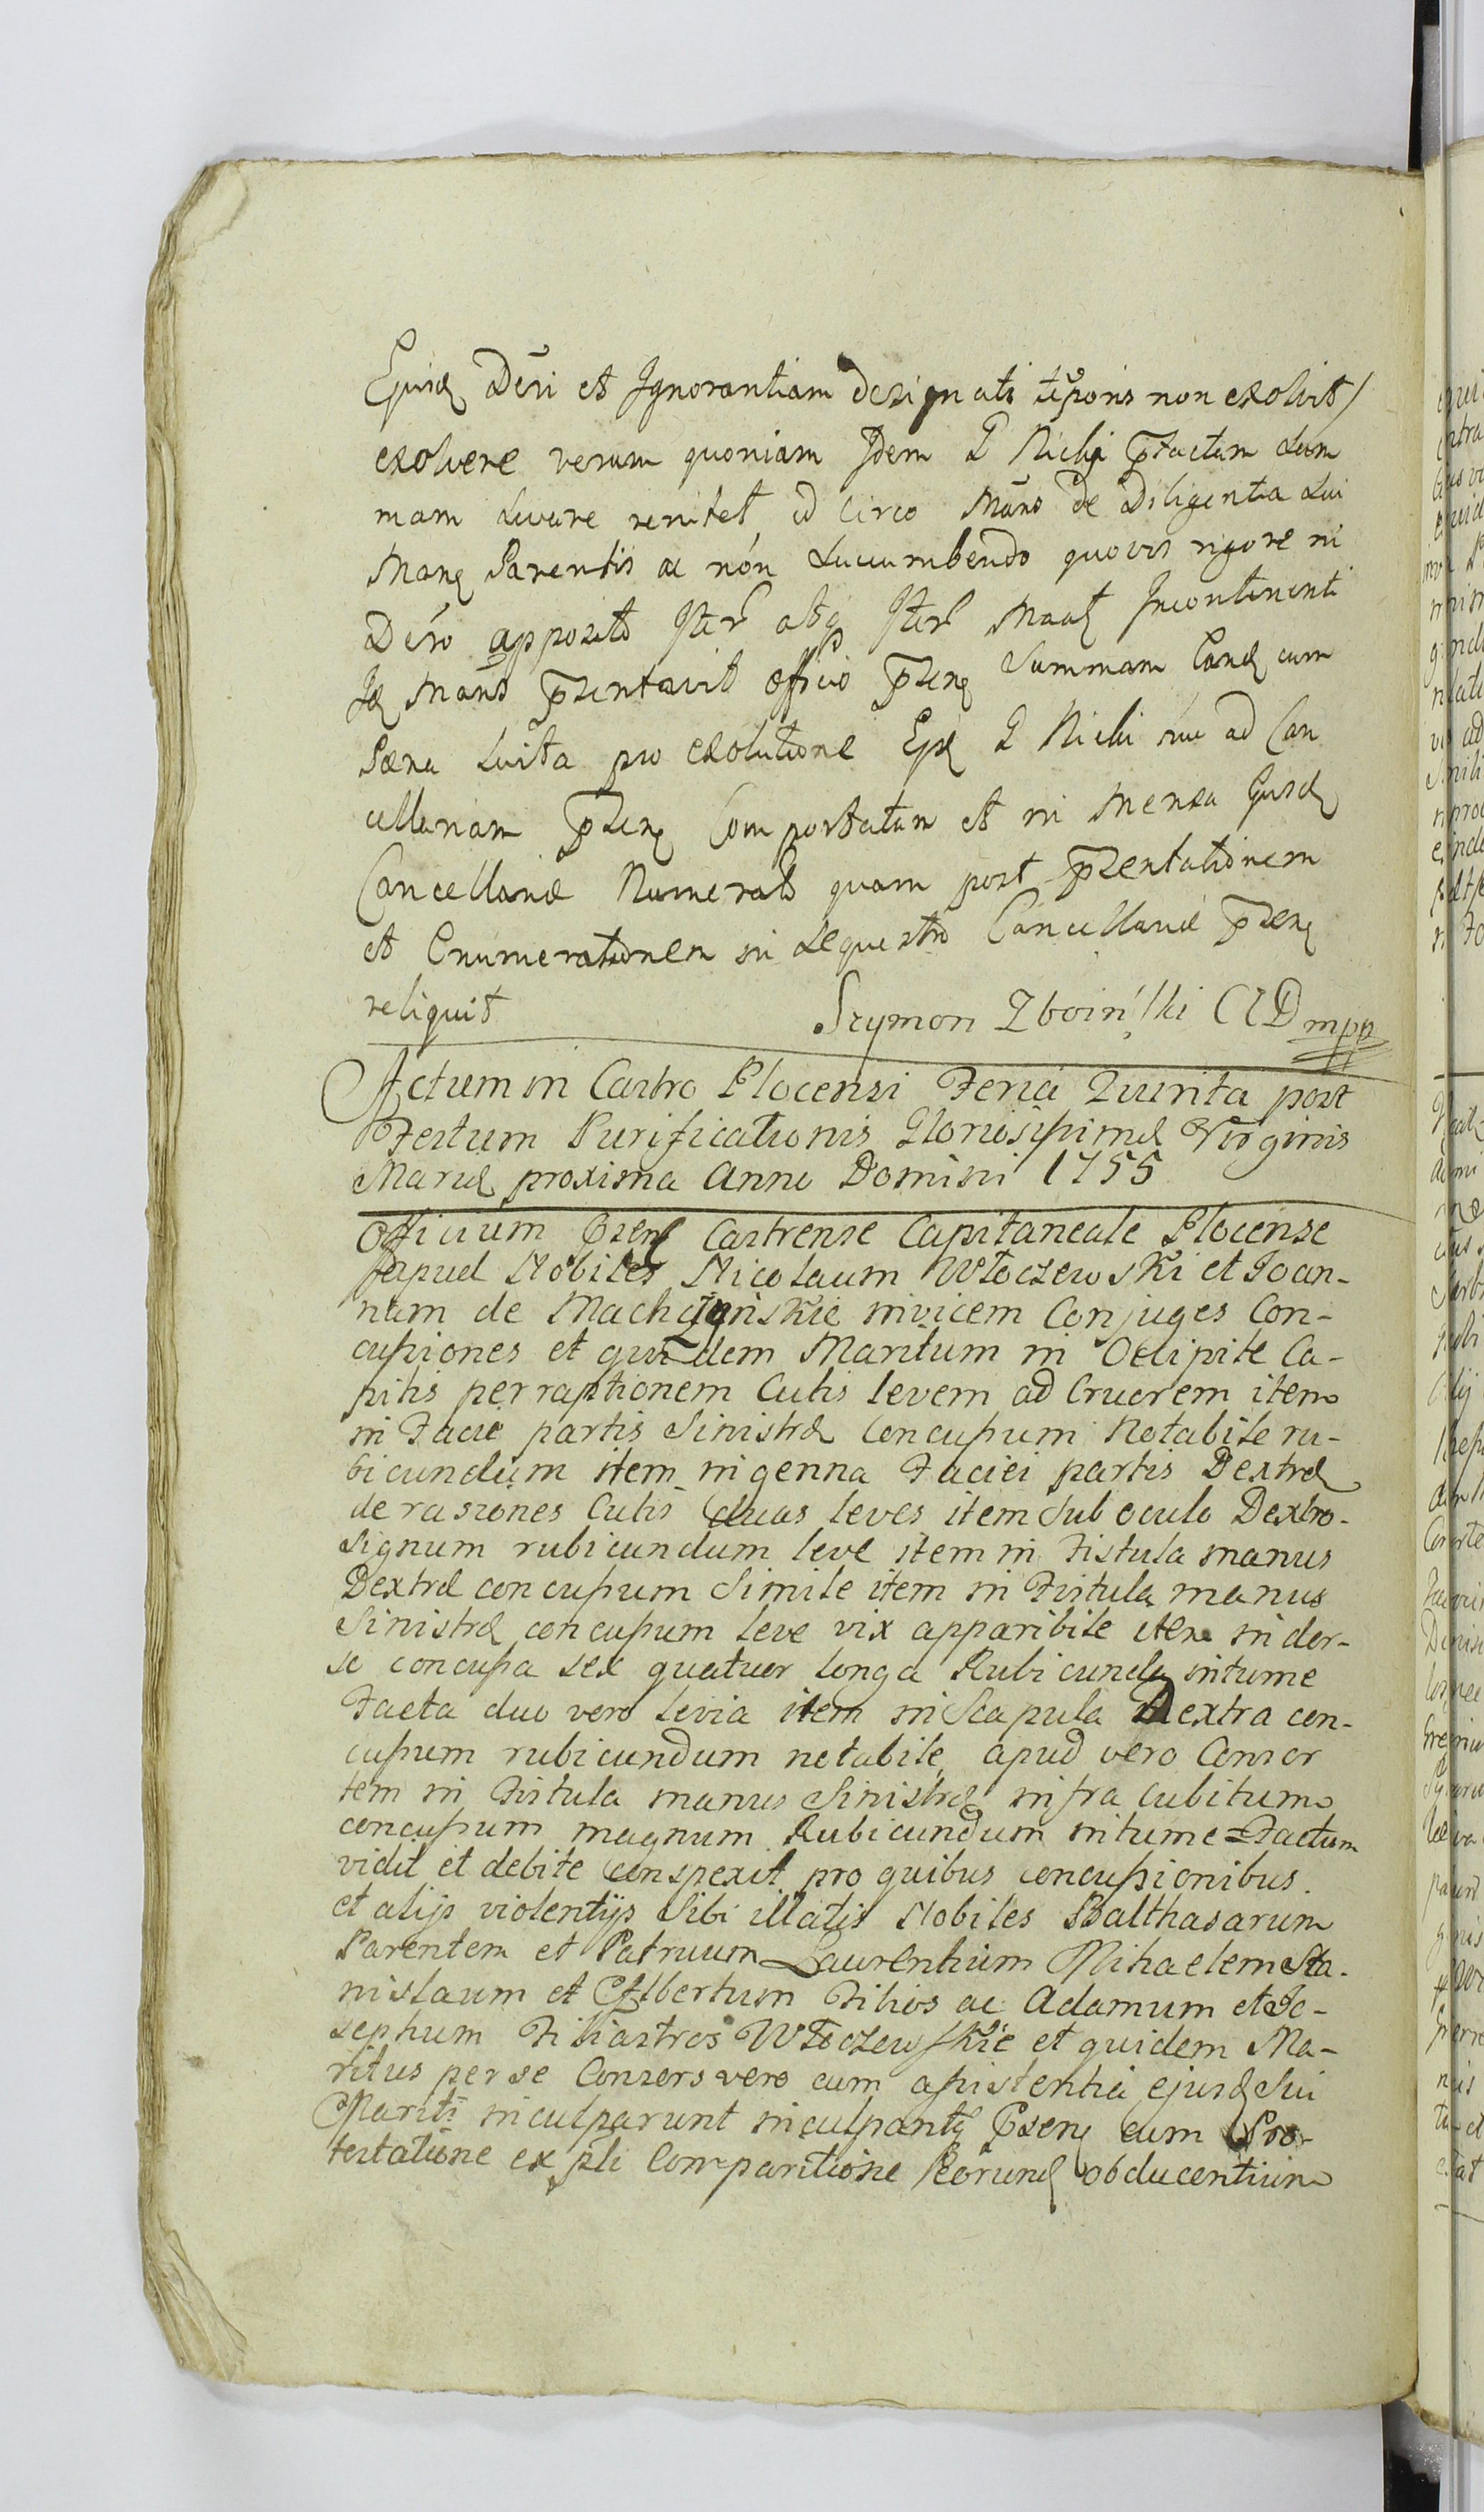 Ejusd Dēri et Ignorantiam designati tēporis non exolvit /
exolvere verum quoniam Idem G Nicki pfactam Sum
mam Levare renitet, id circo Māns de Diligentia Sui
Manq Parentis ac nōn Succumbendo quovis rigore in
Dēro apposito Itēr absq Itēr Incontinenti
Id Māns pzentavit officio pzenq Summam Eand cum
Pæna Luita pro exolutione Ejsd G Nicki sive ad Can
cellariam pzenq Comportatam et in Mensa Ejusd
Cancellariæ Numerată quam post pzentationem
et Enumerationem in Sequestro Cancellariæ pzenq
reliquit
Szymon Zboiński mpp
Actum in Castro Plocensi Feria Quinta post
Festum Purificationis Gloriosissimæ Virginis
Mariæ proxima Anno Domini 1755
Officium pzens Castrense Capitaneale Plocense
apud Nobiles Nicolaum Włoczewski et Joan-
nam de Machczynskie invicem Conjuges Con-
cussiones et quidem Maritum in Occipite Ca-
pitis perraptionem Cutis levem ad Cruorem item
in Facie partis Sinistræ Concussum Notabile ru-
bicundum item in genna Faciei partis Dextræ
derasiones Cutis duas leves item Sub oculo Dextro
Signum rubicundum leve item in Fistula manus
Dextræ concussum Simile item in Fistula manus
Sinistræ concussum leve vix apparibile item in dor-
so concussa sex quatuor longa Rubicunda intume
Facta duo vero levia item in Scapula Dextra con-
cussum rubicundum notabile, apud vero Consor
tem in Fistula manus Sinistræ infra cubitum
concussum magnum Rubicundum intume=Factum
vidit et debite Conspexit pro quibus concussionibus
et alijs violentijs Sibi illatis Nobiles Balthasarum
Parentem et Patruum Laurentium Mihaelem Sta-
nislaum et Albertum Filios ac Adamum et Jo-
sephum Filiastros Włoczewskie et quidem Ma-
ritus per se Consors vero cum assistentia ejusd Sui
Mariti inculparunt inculpantq pzenq cum Pro-
testatione ex pli Comparitione Eorund obducentium